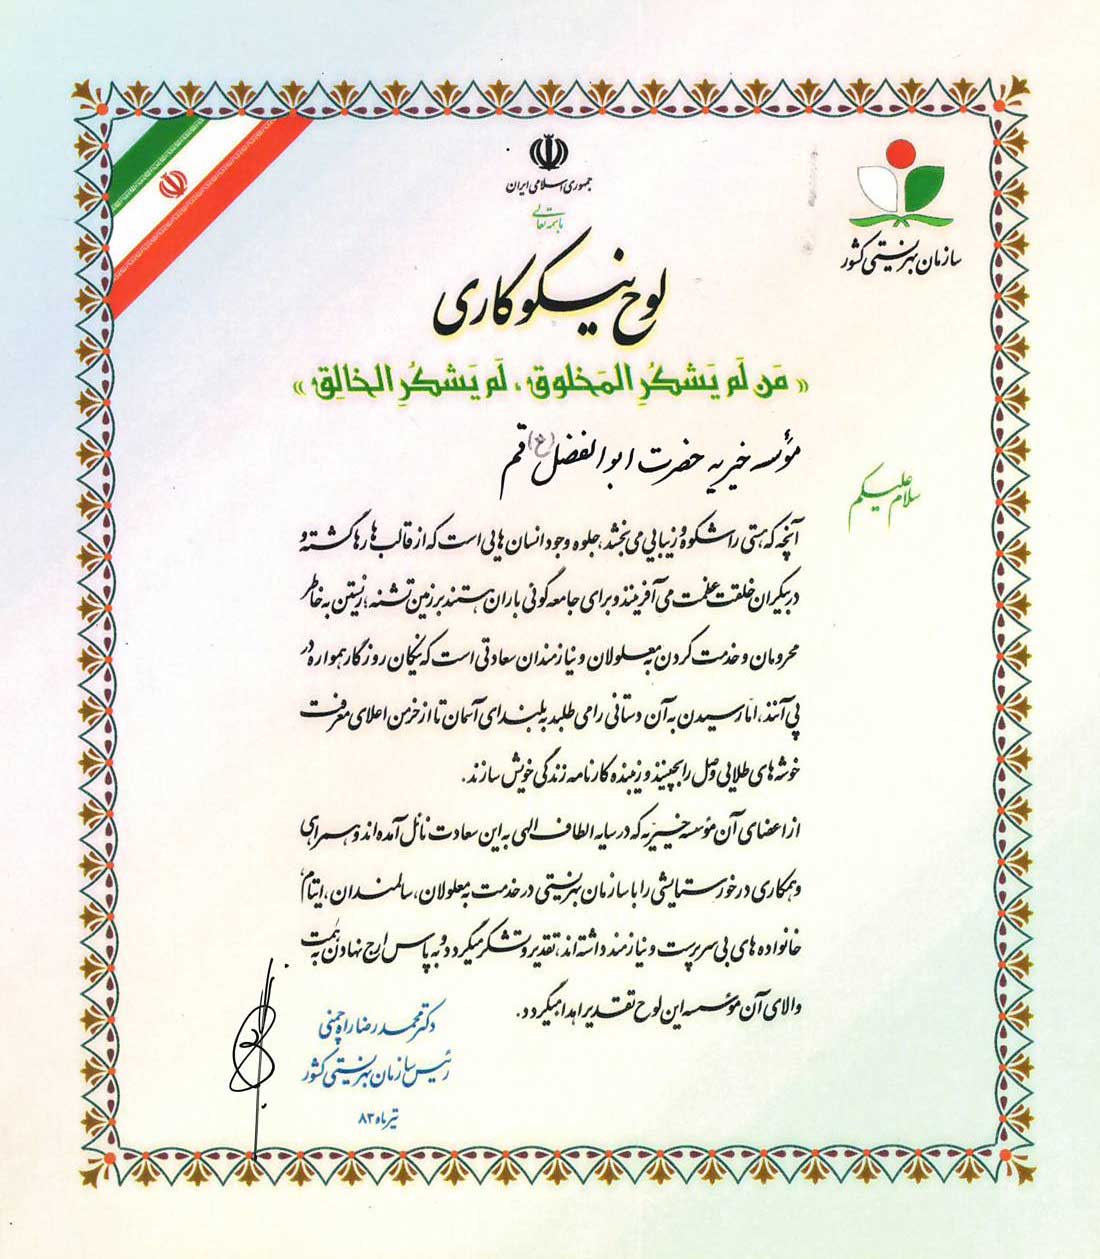 جمهوری اسلامی ایران
باسمه تعالی
سازمان بهزیستی کشور
لوح نیکوکاری
« مَن لَم یَشکُرِ المَخلوق ، لَم یَشکُرِ الخالِق »
مؤسسه خیریه حضرت ابوالفضل (ع) قم
سلام علیکم
آنچه که هستی را شکوه و زیبایی می بخشد، جلوه وجود انسان هایی است که از قالب ها رها گشته و
در بیکران خلقت عظمت می آفرینند و برای جامعه گونی باران هستند بر زمین تشنه ؛ زیستن به خاطر
محرومان و خدمت کردن به معلولان و نیازمندان سعادتی است که نیکان روزگار همواره در
پی آنند، اما رسیدن به آن دستانی را می طلبد به بلندای آسمان تا از خرمن اعلای معرفت
خوشه های طلایی وصل را بچینند و زیبنده کارنامه زندگی خویش سازند.
از اعضای آن مؤسسه خیریه که در سایه الطاف الهی به این سعادت نائل آمده اند و همراهی
و همکاری درخور ستایشی را با سازمان بهزیستی در خدمت به معلولان، سالمندان، ایتام،
خانواده های بی سرپرست و نیازمند داشته اند، تقدیر و تشکر میگردد و به پاس ارج نهادن به همت
والای آن مؤسسه این لوح تقدیر اهدا میگردد.
دکتر محمدرضا راه چمنی
رئیس سازمان بهزیستی کشور
تیرماه ۸۳